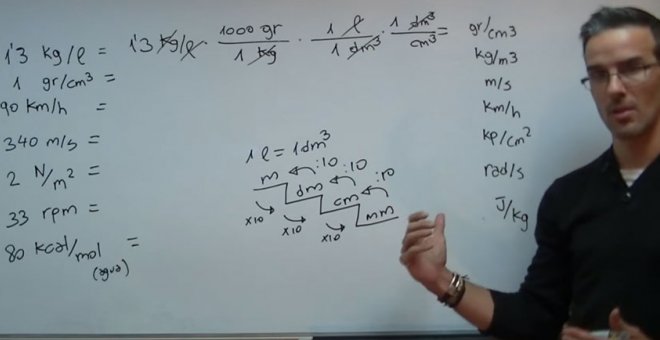 1'3 kg/l = 1'3 kg/l · 1000 gr / 1 kg · 1 l / 1 dm³ · 1 dm³ / cm³ = gr/cm3
1 gr/cm³ = kg/m3
90 Km/h = m/s
340 m/s = km/h
2 N/m² = kp/cm²
33 rpm = rad/s
80 kcal/mol = J/kg
(agua)
1 l = 1dm³
m :10 :10 :10
dm
cm
mm
x10 x10 x10